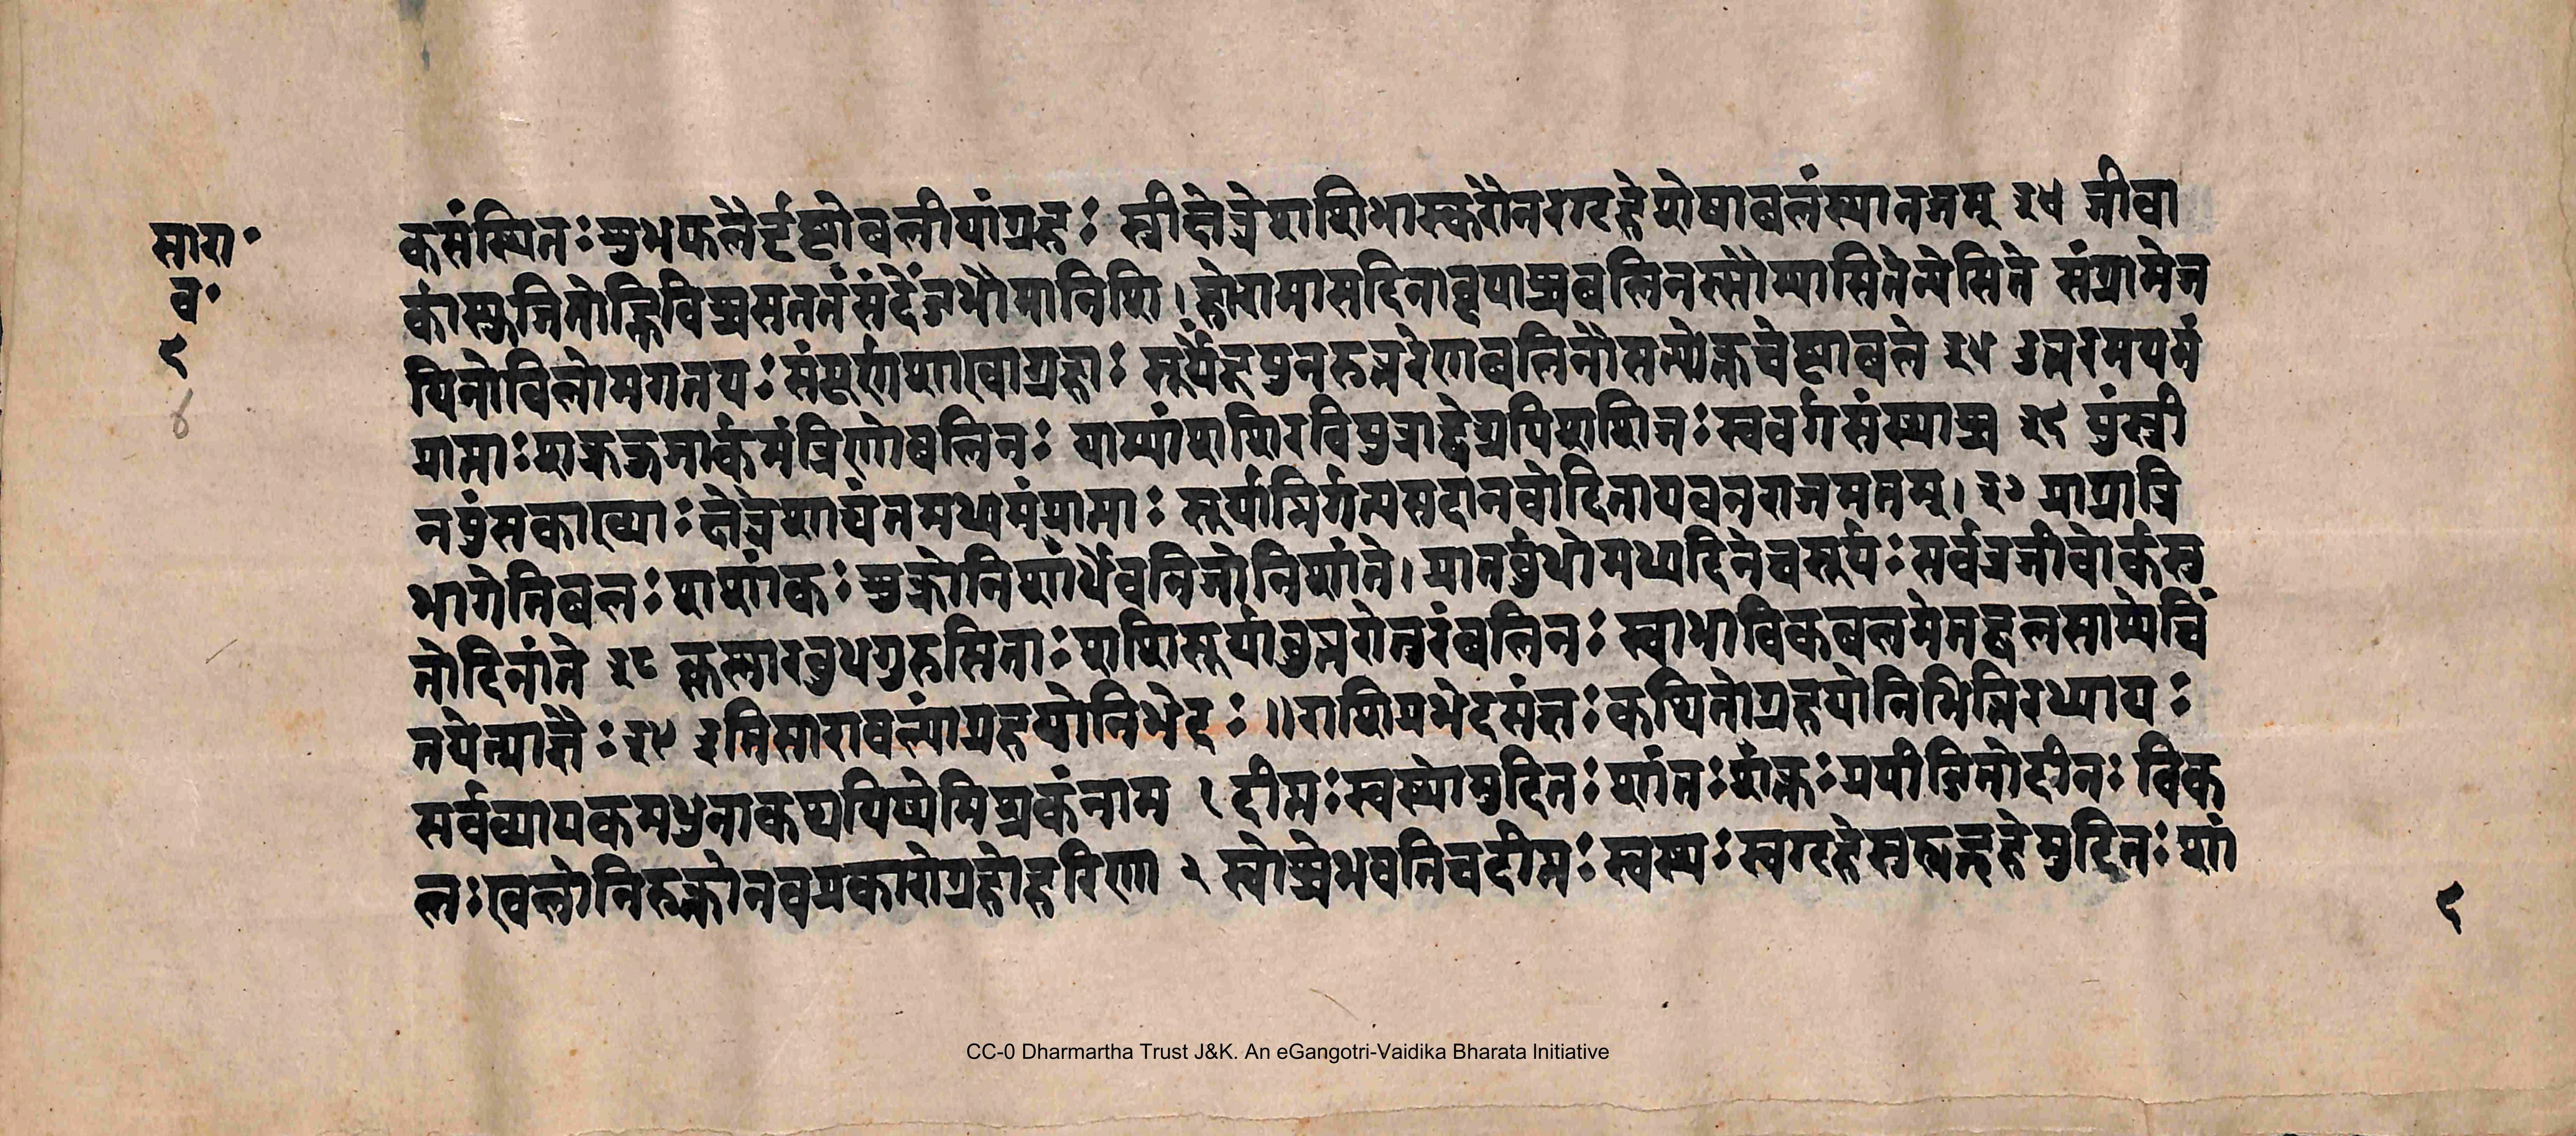 सारा॰
व॰
९
४
कसंस्थितः शुभफलैर्दृष्टोबलीयांग्रहः स्त्रीक्षेत्रेशशिभास्करौनरगृहेशेषाबलंस्थानजम् ३४ जीवा
र्कास्फुजितोह्निविच्चसततंसंदेंजभौमानिशि। होरामासदिनाब्दपाश्चबलिनस्सौम्यासितेन्येसिते संग्रामेज
यिनोविलोमगतयः संपूर्णशाखाग्रहाः सूर्येंदूपुनरुत्तरेणबलिनौसत्योक्तचेष्टाबले ३५ उत्तरमयनं
प्राप्ताः शुक्रकुजार्कमंत्रिणोबलिनः याम्यांशशिरविपुत्राद्वेअपिशशिजः स्ववर्गसंस्थाश्च ३६ पुंस्त्री
नपुंसकाख्याः क्षेत्रेशाद्यंतमध्यमंप्राप्ताः सूर्यान्निर्गत्यसदानवोदितायवनराजमतम्। ३७ प्राग्रात्रि
भागेतिबलः शशांकः शुक्रोनिशार्धेवनिजोनिशांते। प्रातर्बुधोमध्यदिनेचसूर्यः सर्वत्रजीवोर्कसु
तोदिनांते ३८ कृष्णारबुधगुरुसिताः शशिसूर्यावुत्तरोत्तरंबलिनः स्वाभाविकबलमेतद्बलसाम्येचिं
तयेत्प्राज्ञैः ३९ इतिसारावल्यांग्रहयोनिभेदः ॥ राशिप्रभेदसंज्ञः कथितोग्रहयोनिभिन्निरध्यायः
सर्वव्यापकमधुनाकथयिष्येमिश्रकंनाम १ दीप्तः स्वस्थोमुदितः शांतः शक्तः प्रपीडितोदीनः विक
लः खलोनिरुक्तोनवप्रकारोग्रहोहरिणा २ स्वोच्चेभवतिचदीप्तः स्वस्थः स्वगृहेसुहृद्गृहेमुदितः शां
९
CC-0 Dharmartha Trust J&K. An eGangotri-Vaidika Bharata Initiative